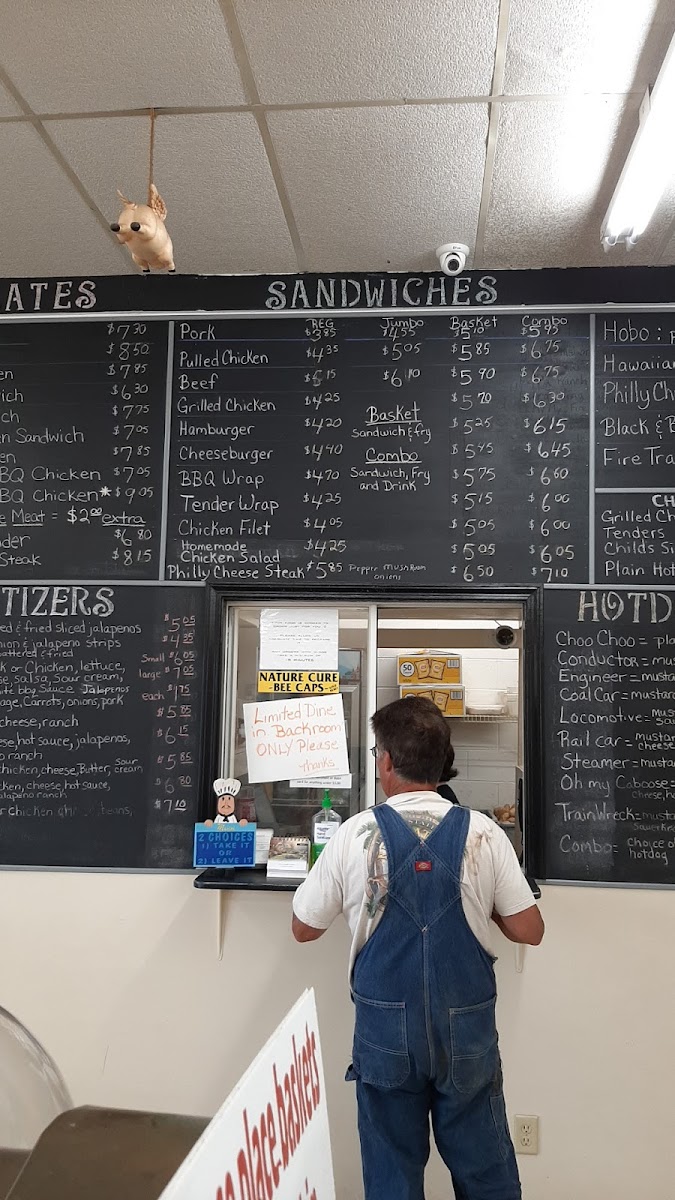 ATES
SANDWICHES
$7.30
$8.50
en $7.85
ich $6.30
ch $7.75
en Sandwich $7.05
en $7.85
BQ Chicken $7.05
BQ Chicken* $9.05
e Meat = $2.00 extra
der $6.80
Steak $8.15
REG Jumbo Basket Combo
Pork $3.85 $4.55
Pulled Chicken $4.35 $5.05 $5.85 $6.75
Beef $6.10 $5.90 $6.75
Grilled Chicken $4.25 $5.70 $6.30
Hamburger $4.20 $5.25 $6.15
Cheeseburger $4.40 $5.45 $6.45
BBQ Wrap $4.70 $5.75 $6.60
Tender Wrap $4.25 $5.15 $6.00
Chicken Filet $4.05 $5.05 $6.00
Homemade
Chicken Salad $4.25 $5.05 $6.05
Philly Cheese Steak $5.85 Pepper Mushroom $6.50 $7.10
onions
Basket
Sandwich & fry
Combo
Sandwich, Fry
and Drink
Hobo :
Hawaiian
Philly Ch
Black & B
Fire Tra
CH
Grilled Ch
Tenders
Childs Si
Plain Hot
TIZERS
ed & fried sliced jalapenos $5.05
nion & jalapeno strips $4.25
battered & fried small $6.05
k or Chicken, lettuce, large $7.05
se, salsa, Sour cream,
hite bbq Sauce Jalapenos each $1.75
age, Carrots, onions, pork $5.05
cheese, ranch
ese, hot sauce, jalapenos, $6.15
o ranch
chicken, cheese, Butter, Sour cream $5.85
cken, cheese, hot sauce, $6.80
alapeno ranch
r chicken $7.10
HOTD
Choo Choo = pla
Conductor = mus
Engineer = musta
Coal Car = mustar
Locomotive = mus
Rail car = mustar
cheese
Steamer = musta
Oh my Caboose =
Cheese, h
Train Wreck = musta
Combo - choice o
hotdog
NATURE CURE
-BEE CAPS-
Limited Dine
in Backroom
ONLY Please
Thanks
50
2 CHOICES
1) TAKE IT
OR
2) LEAVE IT
place baskets
in